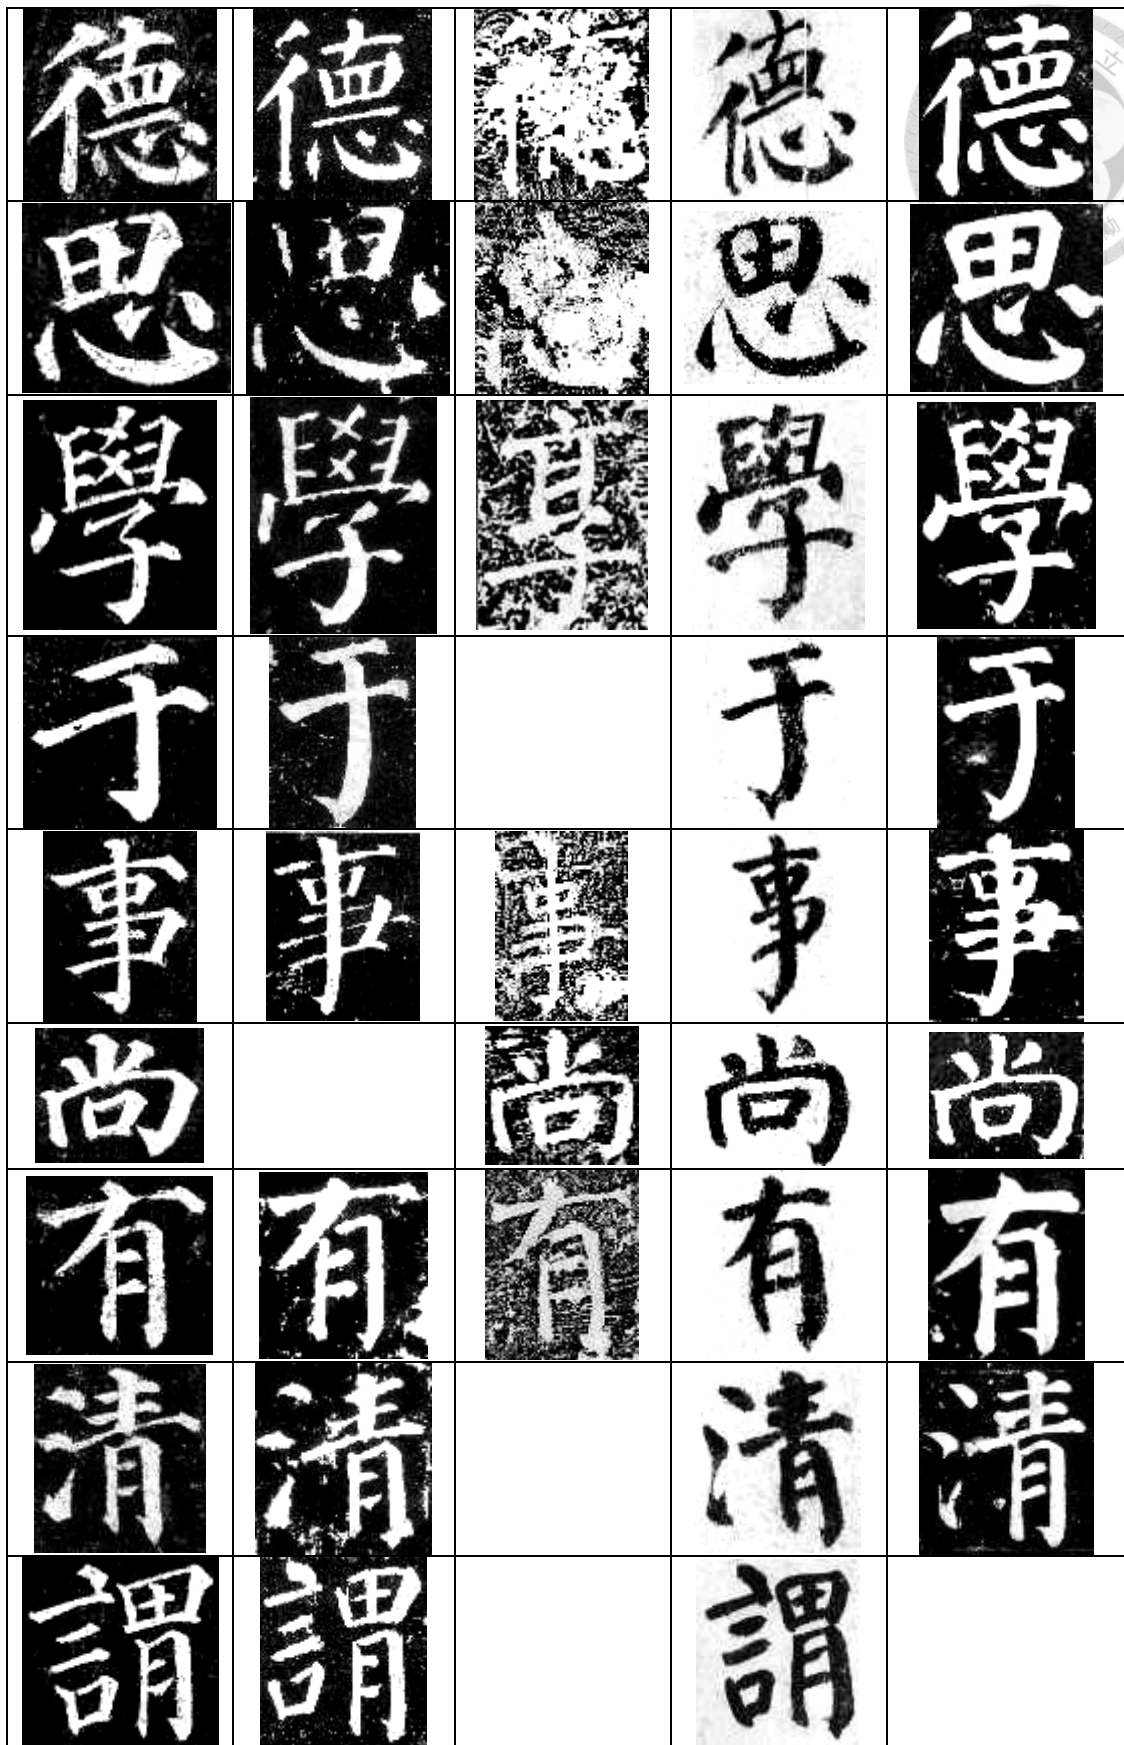 德 德 德 德
思 思 思 思
學 學 學 學
于 于 于 于
事 事 事 事 事
尚 尚 尚 尚
有 有 有 有 有
清 清 清 清
謂 謂 謂